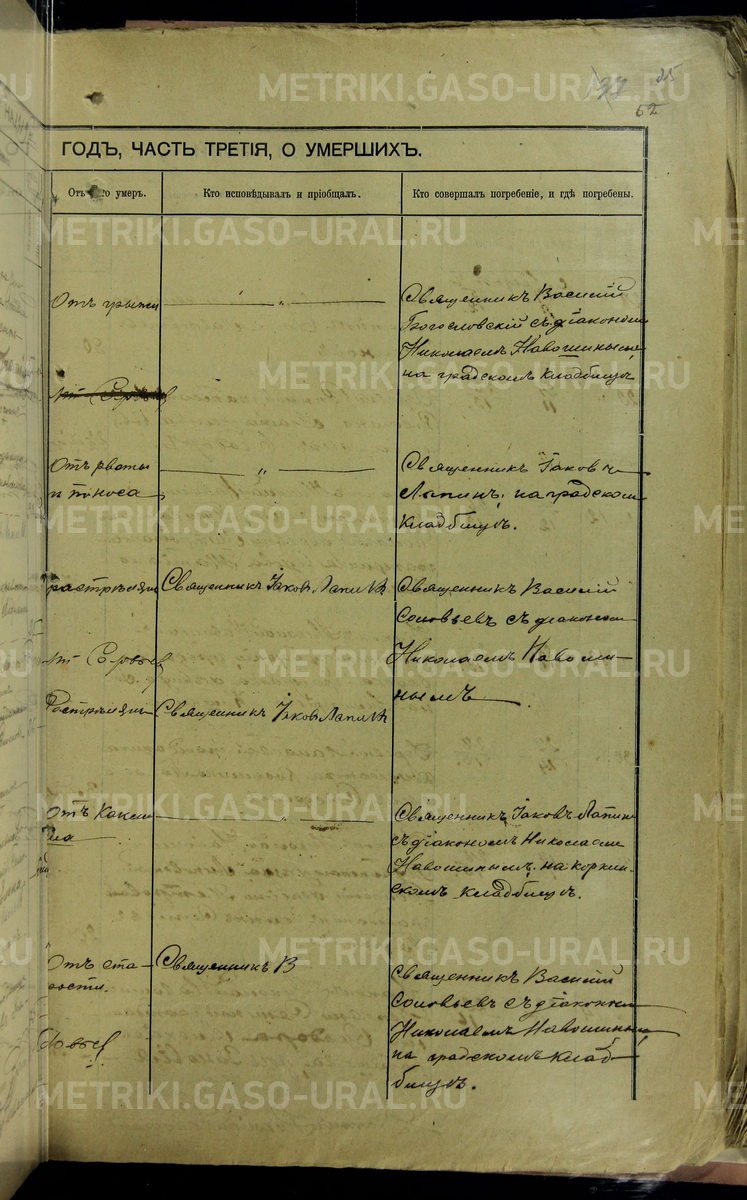 37 25
52
ГОДЪ, ЧАСТЬ ТРЕТІЯ, О УМЕРШИХЪ.
Отъ го умеръ.
Кто исповѣдывалъ и пріобщалъ.
Кто совершалъ погребеніе, и гдѣ погребены.
Отъ грыжи
Священникъ Василій
Богословскій съ діакономъ
Николаемъ Навошинымъ
на градскомъ кладбищѣ
Отъ рвоты
и поноса
Священникъ Іаковъ
Лапинъ, на градскомъ
кладбищѣ.
Священникъ Іаковъ Лапинъ
Священникъ Василій
Соловьевъ съ діакономъ
Николаемъ Навоши-
нымъ
Священникъ Іаковъ Лапинъ
Отъ кашля
Священникъ Іаковъ Лапинъ
съ діакономъ Николаемъ
Навошинымъ. на коркин-
скомъ кладбищѣ.
Отъ ста-
рости.
Священникъ В
Священникъ Василій
Соловьевъ съ діакономъ
Николаемъ Навошинымъ
на градскомъ клад-
бищѣ.
METRIKI.GASO-URAL.RU